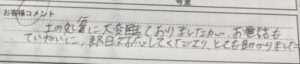 お客様コメント
土の処分に大変困っておりましたが、お電話も
ていねいに、即日対応してくださり、とても助かりました